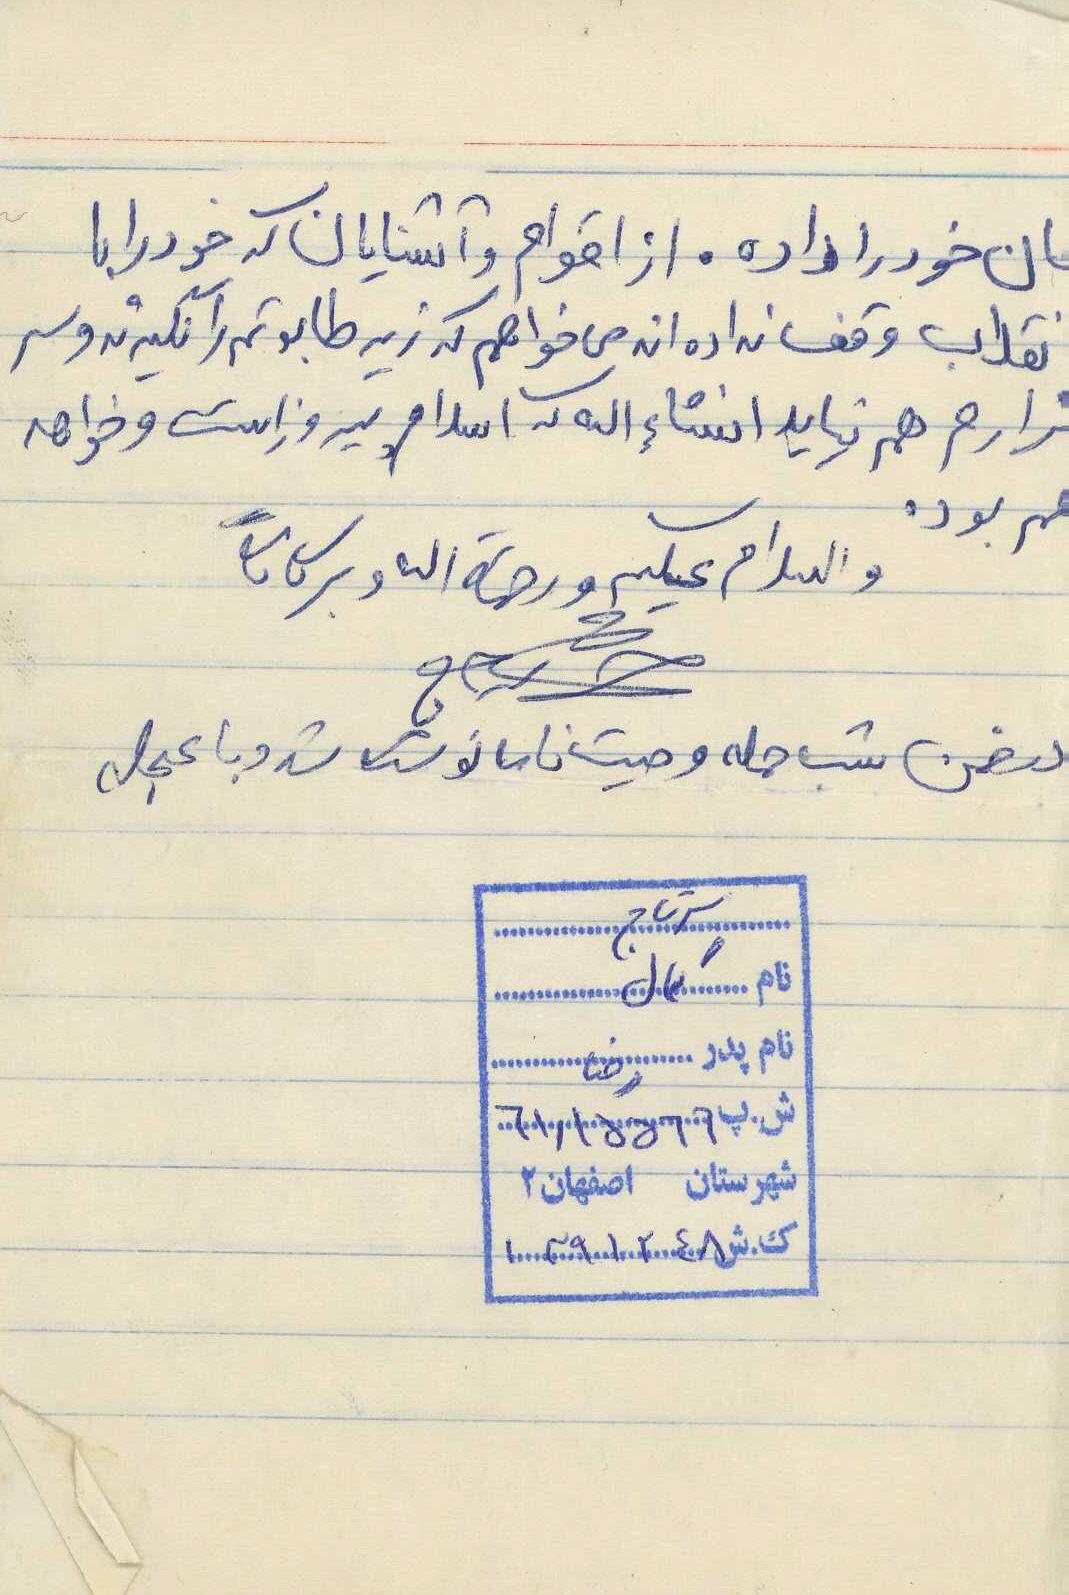 خود را داده . از اقوام و آشنایان که خود را با
نقلاب وقف نداده اند می خواهم که زیر طابوتم را نگیرند و سر
هم نیاید انشاءاله که اسلام پیروز است و خواهد
هم بود .
والسلام علیکم و رحمة اله و برکاتة
درضمن شب حمله وصیت نامه نوشته شد و با عجله
نام
نام پدر رضا
ش.پ
شهرستان اصفهان ۲
ک.ش ۱۰۲۹۱۲۴۸